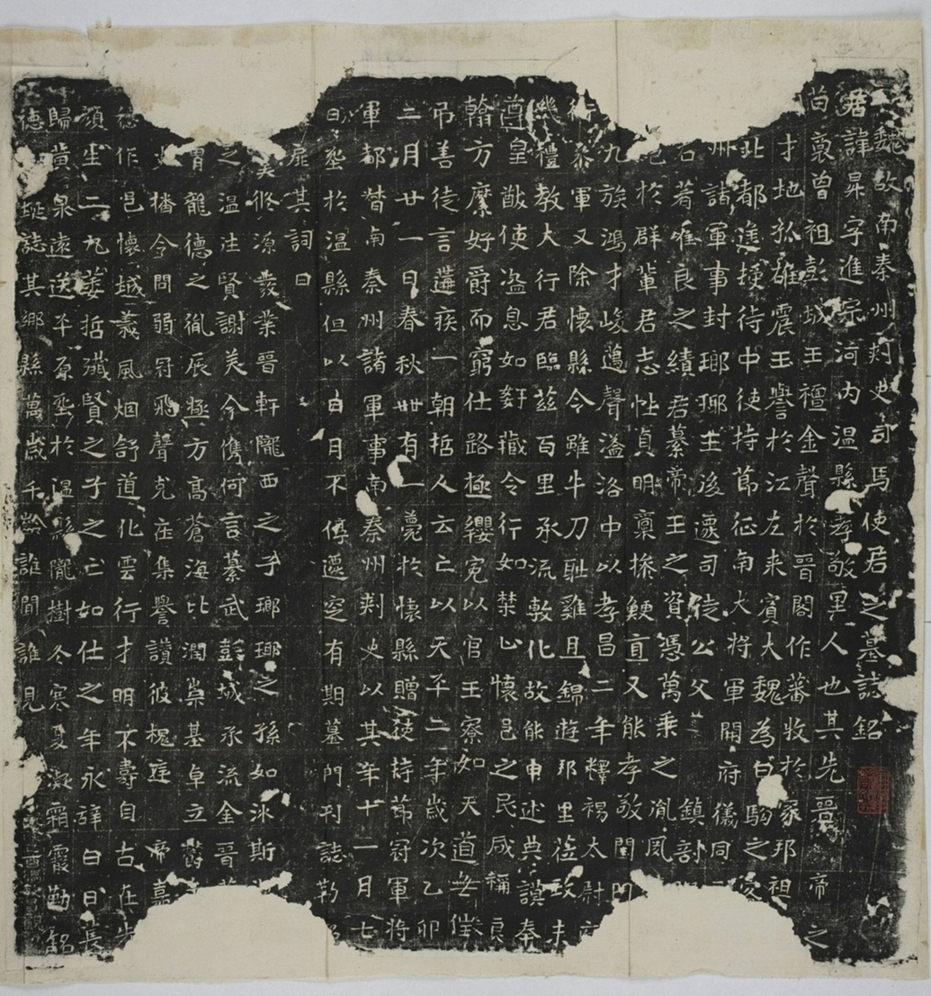 魏故南秦州刾史司馬使君之墓誌銘
君諱昇字進宗河内温縣孝敬里人也其先晉帝之
尚裏曾祖彭城王襢金聲於晉閣作蕃牧於家邦祖
才地孤雄震王譽於江左来賓大魏為白駒之客
北都進授侍中使持節征南大将軍開府儀同
州諸軍事封瑯琊王後遷司徒公父鎮剖
石著唯良之績君纂帝王之資憑萬乗之胤風
於群輩君志性貞明稟㨖鯁亘又能孝敬閨門
九族鴻才峻邁聲溢洛中以孝昌二年釋褐太尉府
行叅軍又除懷縣令雖牛刀耻雞且錦遊邦里莅政未
幾禮教大行君臨兹百里承流敷化故能申述典謨奉
遵皇猷使盗息如姧藏令行如禁止懷邑之民咸稱良
翰方縻好爵而窮仕路極纓冕以官王寮如天道無僅
吊善徒言遘疾一朝哲人云亡以天平二年歳次乙卯
二月廿一日春秋卌有一薨於懷縣贈使持節冠軍将
軍都督南秦州諸軍事南秦州刾史以其年十一月七
日塟於温縣但以日月不停遷窆有期墓門刊誌勒
扉其詞曰
脩源𤼵業晉軒隴西之子瑯琊之孫如氷斯
之温注賢謝美今儁何言纂武彭城承流金晉
龍德之胤辰極方高蒼海比潤崇基卓立
令問弱冠飛聲尅在集譽讃彼槐庭帝嘉
作邑懷域義風烟舒道化雲行才明不壽自古在
頭坐二九萎哲殲賢之子之亡如仕之年永辞白日長
歸黄泉遠送平原塟於温縣隴樹冬寒夏凝霜霞勒銘
德埏誌其鄉縣萬歳千齡誰聞誰見